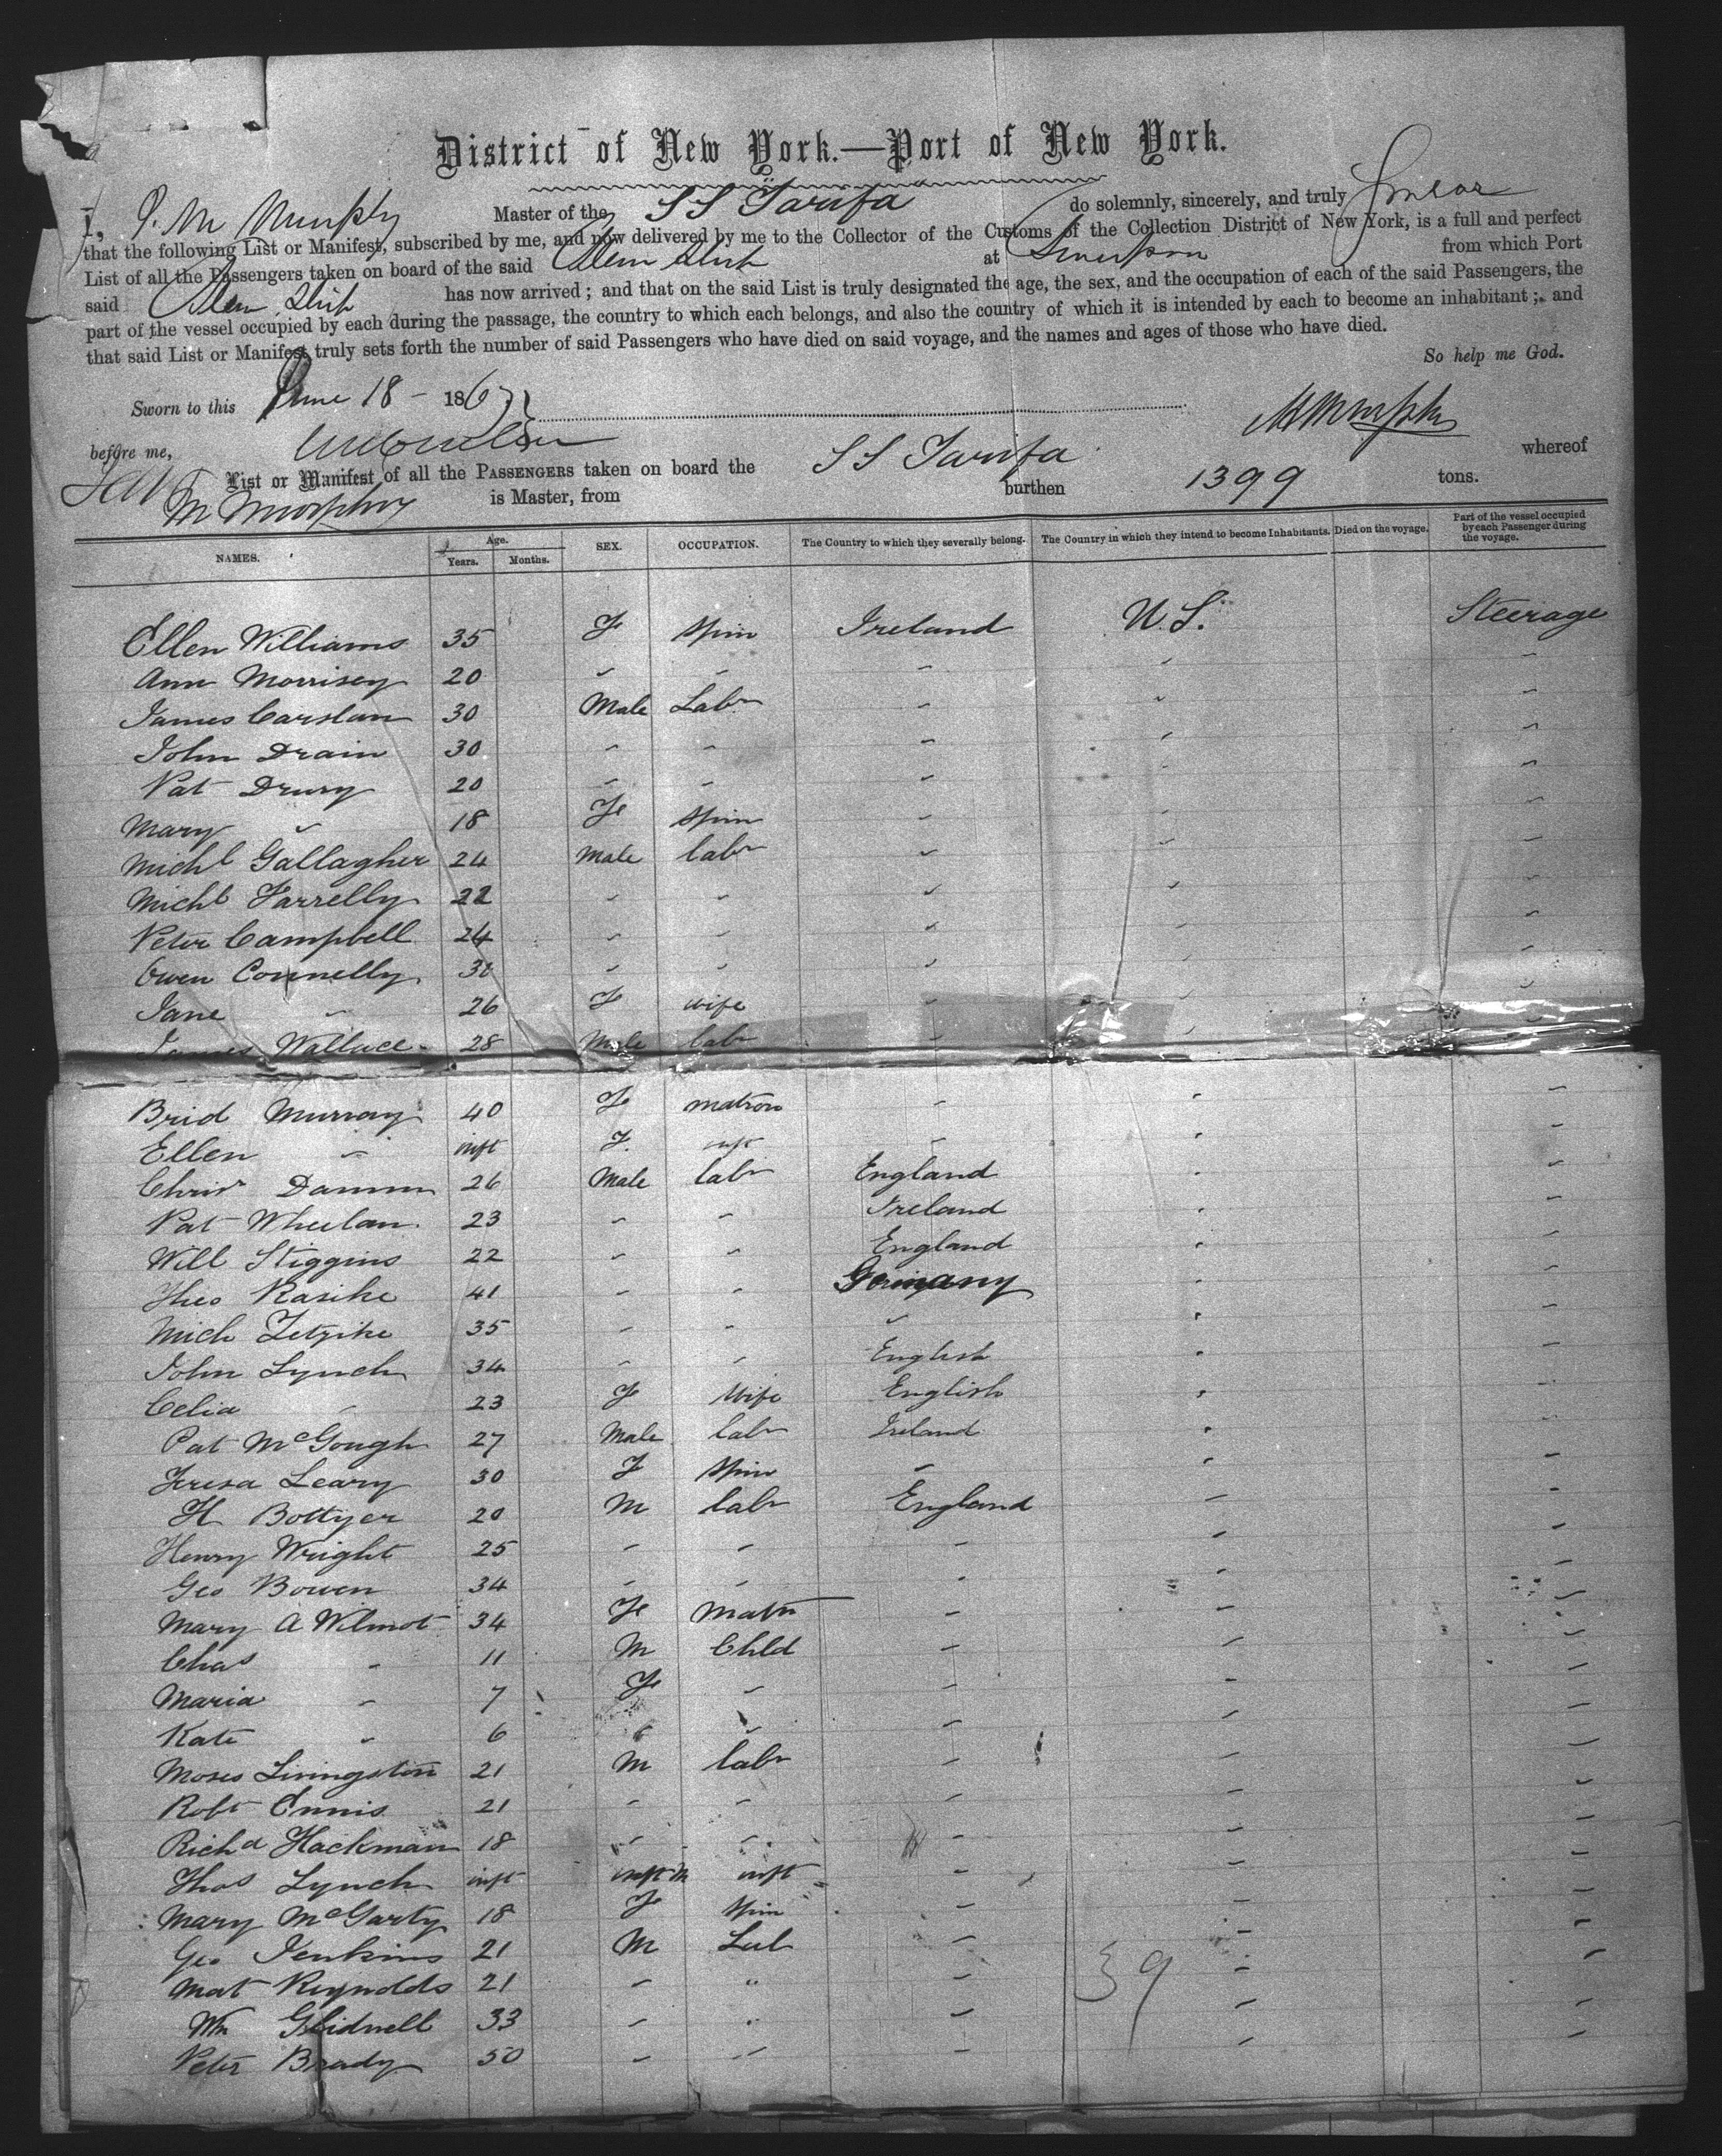 District of New York.—Port of New York.
I, P. M Murphy Master of the SS Tarifa do solemnly, sincerely, and truly Swear
that the following List or Manifest, subscribed by me, and now delivered by me to the Collector of the Customs of the Collection District of New York, is a full and perfect
List of all the Passengers taken on board of the said Stem Ship at Liverpool from which Port
said Stem Ship has now arrived; and that on the said List is truly designated the age, the sex, and the occupation of each of the said Passengers, the
part of the vessel occupied by each during the passage, the country to which each belongs, and also the country of which it is intended by each to become an inhabitant; and
that said List or Manifest truly sets forth the number of said Passengers who have died on said voyage, and the names and ages of those who have died.
So help me God.
Sworn to this June 18 - 1867
before me, M Murphy
List or Manifest of all the PASSENGERS taken on board the SS Tarifa whereof
M Murphy is Master, from burthen 1399 tons.
NAMES. Age. Years. Months. SEX. OCCUPATION. The Country to which they severally belong. The Country in which they intend to become Inhabitants. Died on the voyage. Part of the vessel occupied by each Passenger during the voyage.
Ellen Williams 35 Fe Spin Ireland U.S. Steerage
Ann Morrisey 20 " " " " "
James Carslan 30 Male Labr " " "
John Drain 30 " " " " "
Pat Drury 20 " " " " "
Mary " 18 Fe Spin " " "
Michl Gallagher 24 Male labr " " "
Michl Farrelly 22 " " " " "
Peter Campbell 24 " " " " "
Owen Connelly 30 " " " " "
Jane " 26 F wife " " "
James Wallace 28 Male labr " " "
Brid Murray 40 F matron " " "
Ellen " inft F. inft " " "
Chrisr Damm 26 Male labr England " "
Pat Wheelan 23 " " Ireland " "
Will Stiggins 22 " " England " "
Theo Rasike 41 " " Germany " "
Mich Zetzike 35 " " " " "
John Lynch 34 " " English " "
Celia " 23 F Wife English " "
Pat McGough 27 Male labr Ireland " "
Teresa Leary 30 F Spin " " "
H Bottyer 20 M labr England " "
Henry Wright 25 " " " " "
Geo Bowen 34 " " " " "
Mary A Wilmot 34 Fe Matn " " "
Chas " 11 M Chld " " "
Maria " 7 Fe " " " "
Kate " 6 " " " " "
Moses Livingston 21 M labr " " "
Robt Ennis 21 " " " " "
Richd Hackman 18 " " " " "
Thos Lynch inft inft M inft " " "
Mary McGarty 18 F Spin " " "
Geo Jenkins 21 M Lab " " "
Mat Reynolds 21 " " " " "
Wm Glidwell 33 " " " " "
Peter Brady 50 " " " " "
39